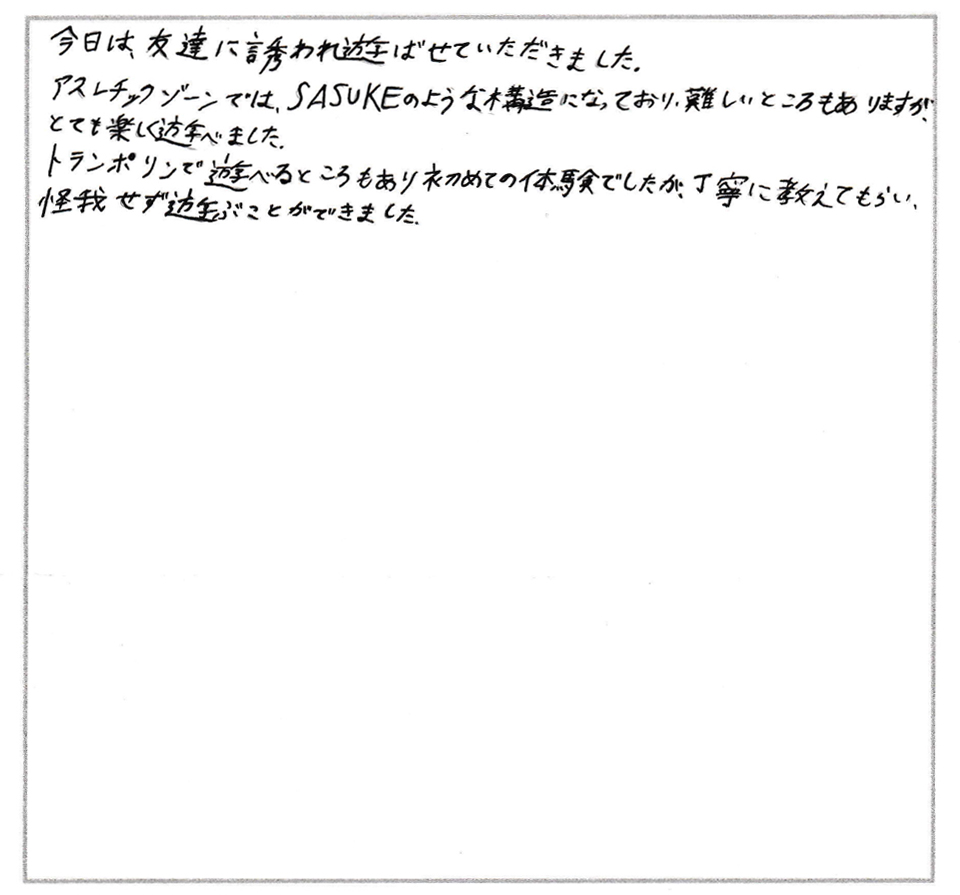 今日は、友達に誘われ遊ばせていただきました。
アスレチックゾーンでは、SASUKEのような構造になっており、難しいところもありますが、
とても楽しく遊べました。
トランポリンで遊べるところもあり初めての体験でしたが、丁寧に教えてもらい、
怪我せず遊ぶことができました。